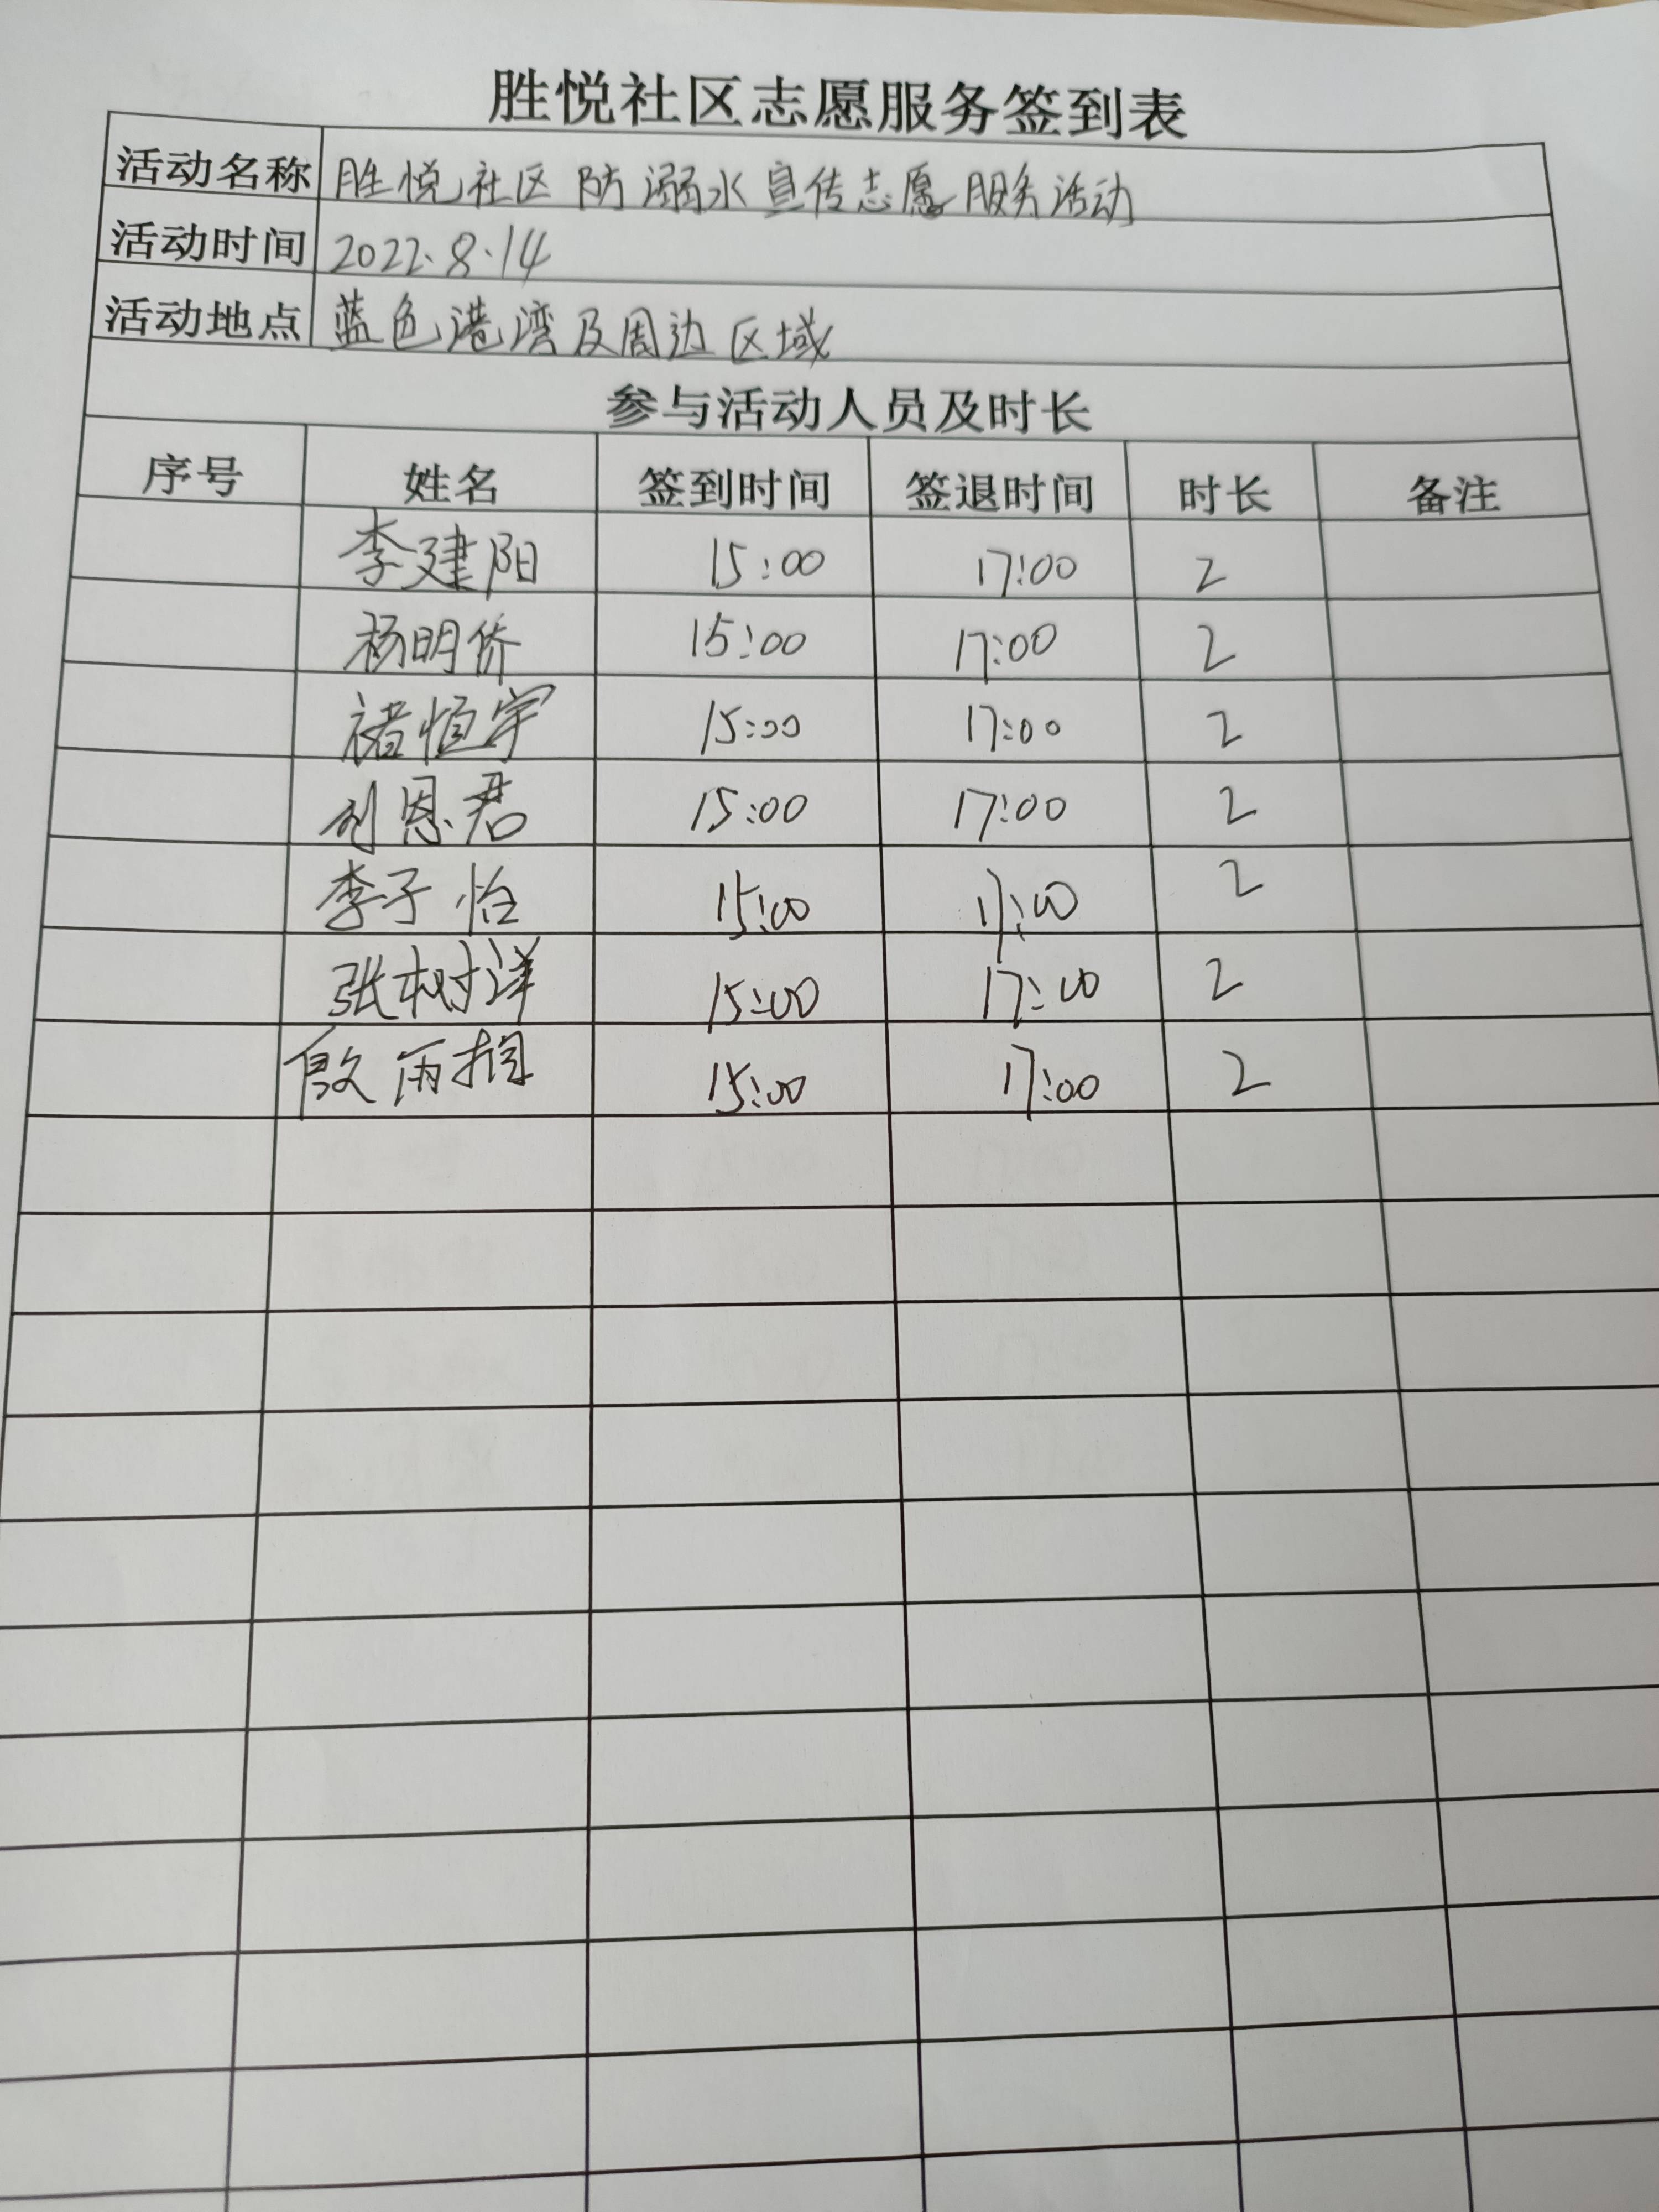 胜悦社区志愿服务签到表
活动名称 胜悦社区防溺水宣传志愿服务活动
活动时间 2022.8.14
活动地点 蓝色港湾及周边区域
参与活动人员及时长
序号 姓名 签到时间 签退时间 时长 备注
李建阳 15:00 17:00 2
杨明侨 15:00 17:00 2
褚恒宇 15:00 17:00 2
刘恩君 15:00 17:00 2
李子怡 15:00 17:00 2
张树洋 15:00 17:00 2
15:00 17:00 2